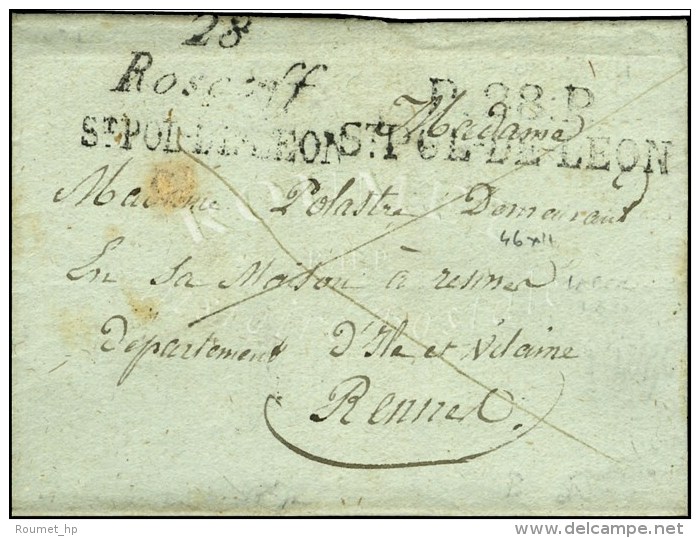 28
Roscoff
ST. POL DE LEON
P. 28. P.
ST. POL-DE-LEON
Madame
Madame Polastre Demeurant
46 XII
En sa Maison à rennes
département d'Ile et vilaine
Rennes.
Roumet_hp
delcampe.net